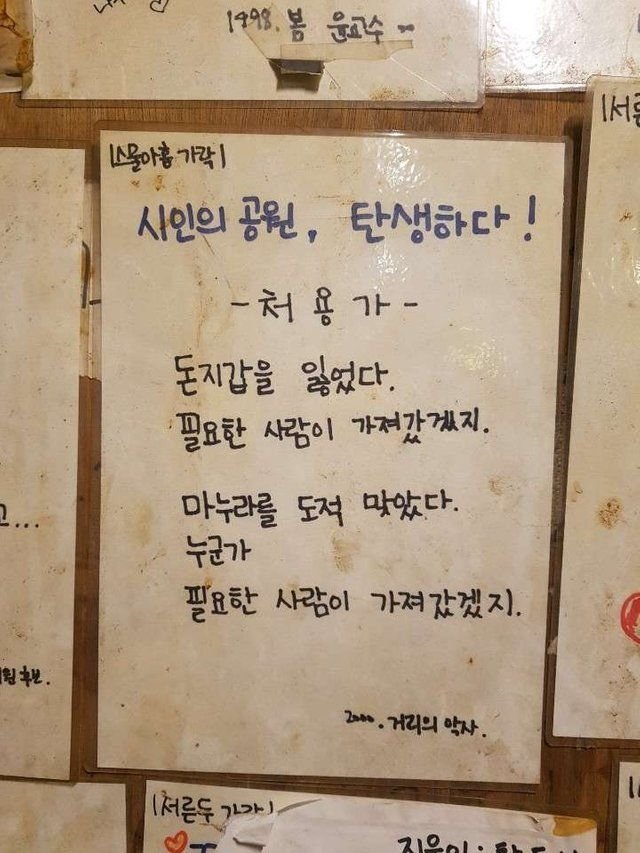 1998. 봄 윤교수
|스물아홉 가락|
시인의 공원, 탄생하다!
- 처용가 -
돈지갑을 잃었다.
필요한 사람이 가져갔겠지.
마누라를 도적 맞았다.
누군가
필요한 사람이 가져갔겠지.
2000. 거리의 악사.
고...
후보.
|서른
|서른두 가락|